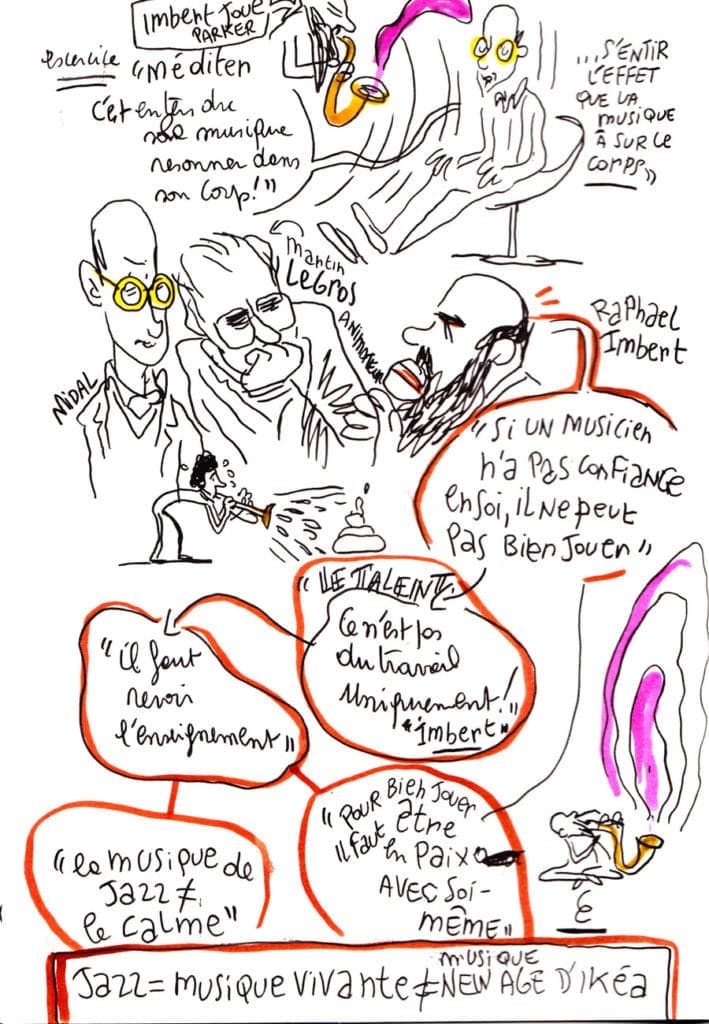 Imbert Joue
PARKER
exercice
"Méditer
c'est entendre
une musique
resonner dans
son corp!"
...S'ENTIR
L'EFFET
QUE LA
MUSIQUE
À SUR LE
CORPS"
Martin
LeGros
ANIMATEUR
NIDAL
Raphael
Imbert
"Si UN MUSiCien
n'a PAS Confiance
en Soi, il Ne peut
PAS Bien Jouer"
"LE TALENT
Ce n'est pas
du travail
Uniquement!"
"Imbert"
"il faut
revoir
l'enseignement"
"POUR Bien Jouer
il FAUT être
en Paix
AVEC Soi-
même"
"la musique de
Jazz ≠
le calme"
Jazz = musique vivante ≠ musique NEW AGE D'IKÉA